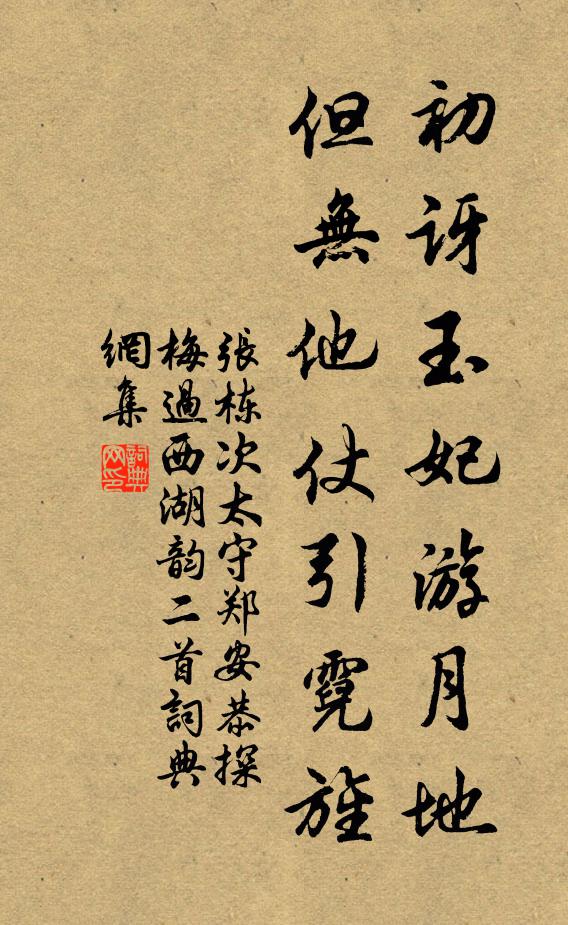 初訝玉妃游月地
但無他仗引霓旌
張栋次太守郑安恭探
梅過西湖韵二首詞典
網集
詞典网印